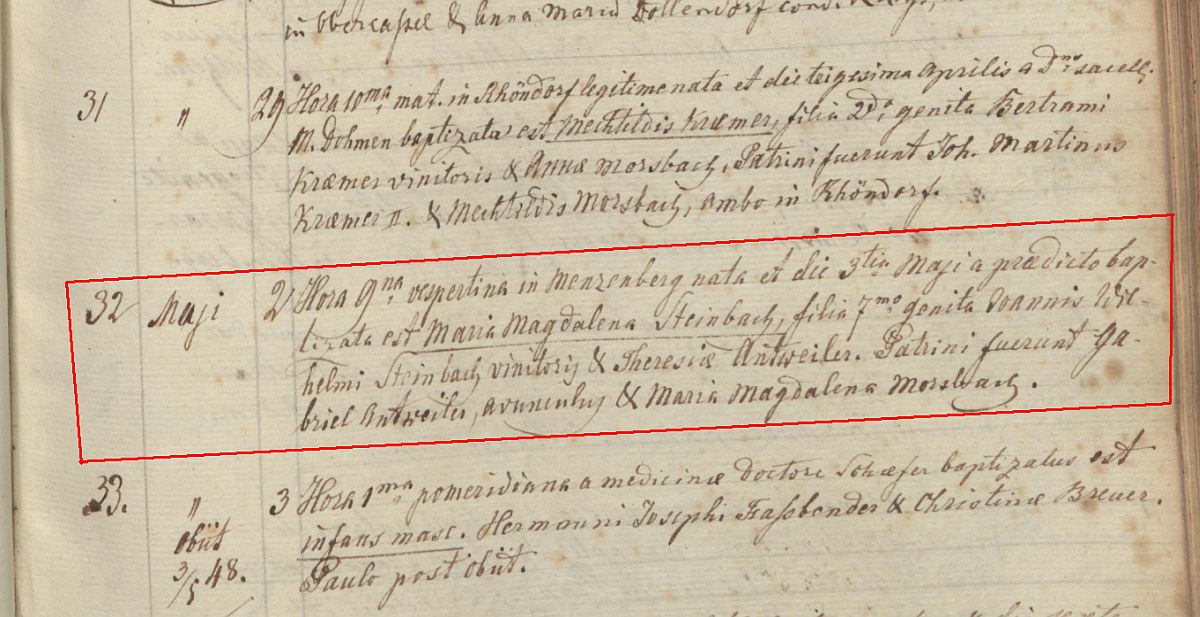 in Obercassel & Anna Maria Dollendorf
31 " 29 Hora 10ma mat. in Rhöndorf legitime nata et die trigesima Aprilis a Dno sacell.
M. Dohmen baptizata est Mechtildis Kræmer, filia 2do genita Bertrami
Kræmer vinitoris & Annæ Morsbach, Patrini fuerunt Joh. Martinus
Kræmer II. & Mechtildis Morsbach, ambo in Rhöndorf.
32 Maji 2 Hora 9na vespertina in Menzenberg nata et die 3tia Maji a prædicto bap-
tizata est Maria Magdalena Steinbach, filia 7mo genita Joannis Wil-
helmi Steinbach vinitoris & Theresiæ Antweiler. Patrini fuerunt Ga-
briel Antweiler, avunculus & Maria Magdalena Morsbach.
33. " 3 Hora 1ma pomeridiana a medicinæ doctore Schæfer baptizatus est
obiit infans masc. Hermanni Josephi Fassbender & Christinæ Breuer.
3/5 48. Paulo post obiit.